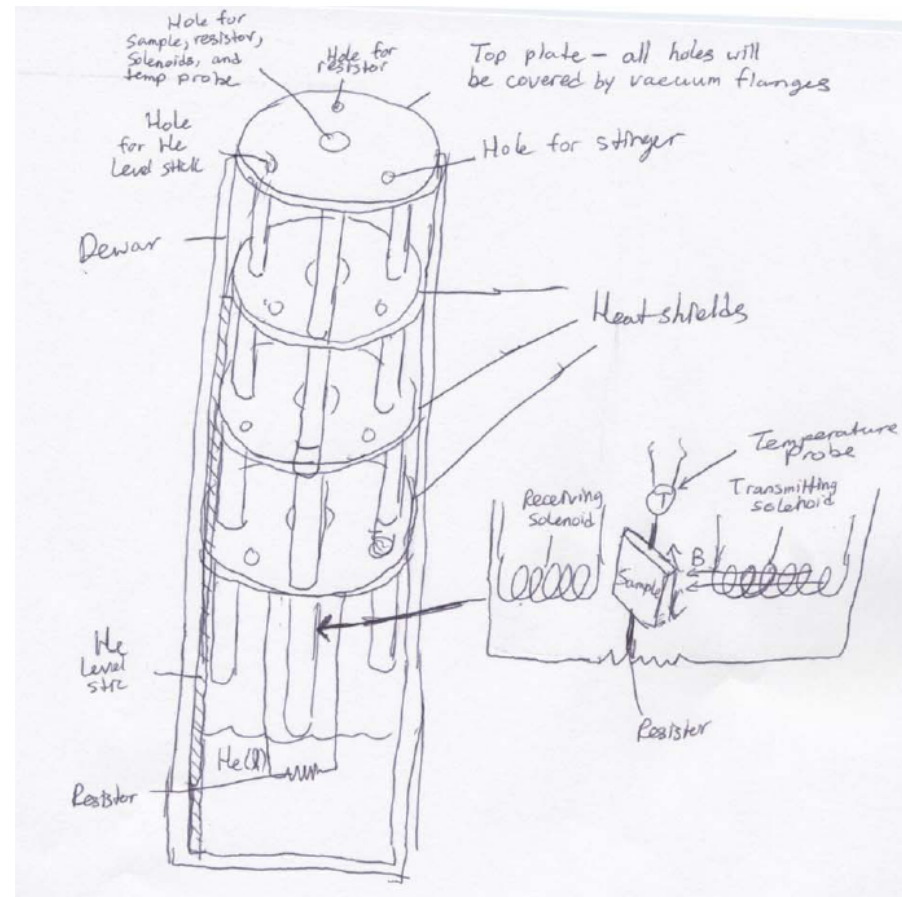 Hole for
Sample, resistor,
Solenoids, and
temp probe
Hole for
resistor
Top plate – all holes will
be covered by vacuum flanges
Hole
for He
Level stick
Hole for stinger
Dewar
Heat shields
Temperature
Probe
Receiving
solenoid
Transmitting
solenoid
T
B
Sample
He
Level
Resistor
He(l)
Resistor